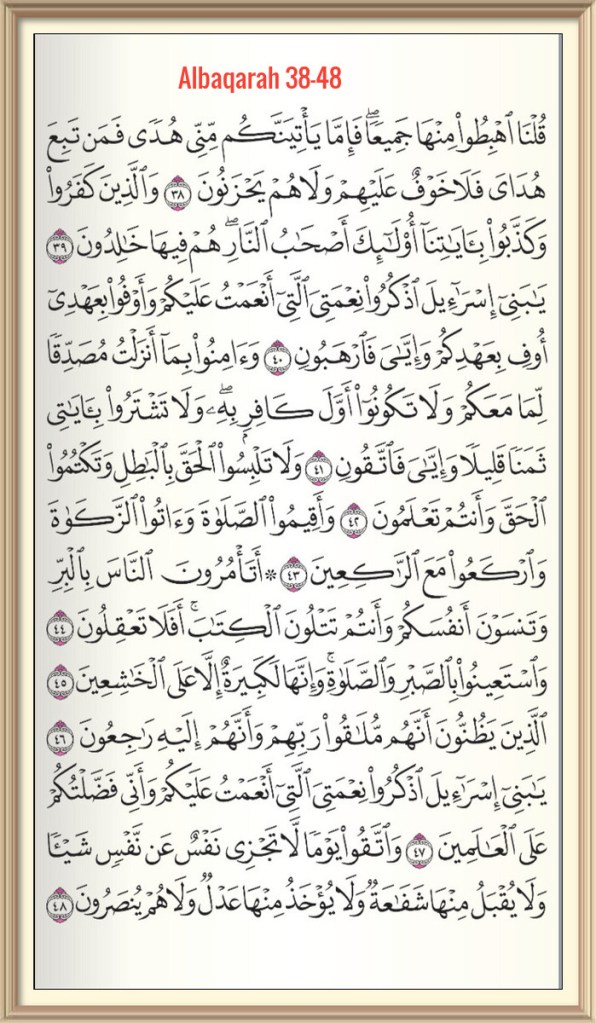 Albaqarah 38-48
قُلْنَا ٱهْبِطُوا۟ مِنْهَا جَمِيعًۭا ۖ فَإِمَّا يَأْتِيَنَّكُم مِّنِّى هُدًۭى فَمَن تَبِعَ
هُدَاىَ فَلَا خَوْفٌ عَلَيْهِمْ وَلَا هُمْ يَحْزَنُونَ ٣٨ وَٱلَّذِينَ كَفَرُوا۟
وَكَذَّبُوا۟ بِـَٔايَـٰتِنَآ أُو۟لَـٰٓئِكَ أَصْحَـٰبُ ٱلنَّارِ ۖ هُمْ فِيهَا خَـٰلِدُونَ ٣٩
يَـٰبَنِىٓ إِسْرَٰٓءِيلَ ٱذْكُرُوا۟ نِعْمَتِىَ ٱلَّتِىٓ أَنْعَمْتُ عَلَيْكُمْ وَأَوْفُوا۟ بِعَهْدِىٓ
أُوفِ بِعَهْدِكُمْ وَإِيَّـٰىَ فَٱرْهَبُونِ ٤٠ وَءَامِنُوا۟ بِمَآ أَنزَلْتُ مُصَدِّقًۭا
لِّمَا مَعَكُمْ وَلَا تَكُونُوٓا۟ أَوَّلَ كَافِرٍۭ بِهِۦ ۖ وَلَا تَشْتَرُوا۟ بِـَٔايَـٰتِى
ثَمَنًۭا قَلِيلًۭا وَإِيَّـٰىَ فَٱتَّقُونِ ٤١ وَلَا تَلْبِسُوا۟ ٱلْحَقَّ بِٱلْبَـٰطِلِ وَتَكْتُمُوا۟
ٱلْحَقَّ وَأَنتُمْ تَعْلَمُونَ ٤٢ وَأَقِيمُوا۟ ٱلصَّلَوٰةَ وَءَاتُوا۟ ٱلزَّكَوٰةَ
وَٱرْكَعُوا۟ مَعَ ٱلرَّٰكِعِينَ ٤٣ ۞ أَتَأْمُرُونَ ٱلنَّاسَ بِٱلْبِرِّ
وَتَنسَوْنَ أَنفُسَكُمْ وَأَنتُمْ تَتْلُونَ ٱلْكِتَـٰبَ ۚ أَفَلَا تَعْقِلُونَ ٤٤
وَٱسْتَعِينُوا۟ بِٱلصَّبْرِ وَٱلصَّلَوٰةِ ۚ وَإِنَّهَا لَكَبِيرَةٌ إِلَّا عَلَى ٱلْخَـٰشِعِينَ ٤٥
ٱلَّذِينَ يَظُنُّونَ أَنَّهُم مُّلَـٰقُوا۟ رَبِّهِمْ وَأَنَّهُمْ إِلَيْهِ رَٰجِعُونَ ٤٦
يَـٰبَنِىٓ إِسْرَٰٓءِيلَ ٱذْكُرُوا۟ نِعْمَتِىَ ٱلَّتِىٓ أَنْعَمْتُ عَلَيْكُمْ وَأَنِّى فَضَّلْتُكُمْ
عَلَى ٱلْعَـٰلَمِينَ ٤٧ وَٱتَّقُوا۟ يَوْمًۭا لَّا تَجْزِى نَفْسٌ عَن نَّفْسٍۢ شَيْـًۭٔا
وَلَا يُقْبَلُ مِنْهَا شَفَـٰعَةٌۭ وَلَا يُؤْخَذُ مِنْهَا عَدْلٌۭ وَلَا هُمْ يُنصَرُونَ ٤٨